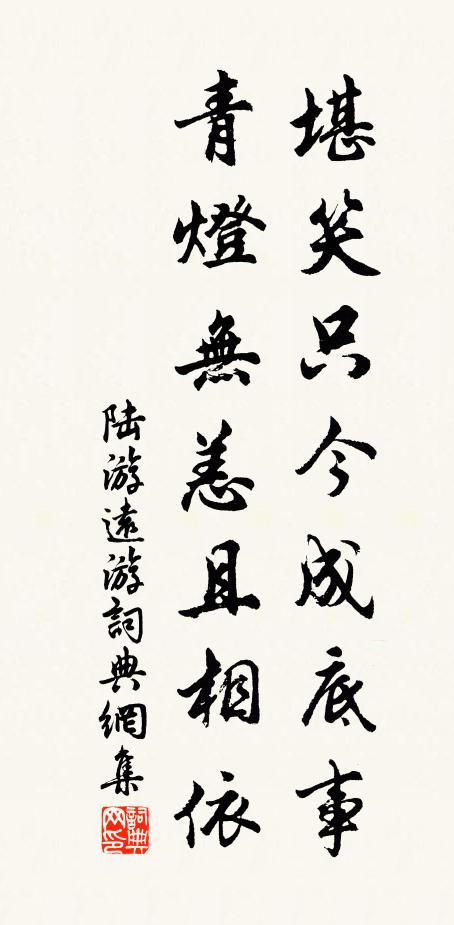 堪笑只今成底事
青燈無恙且相依
陸游遠游詞典網集
詞典网印